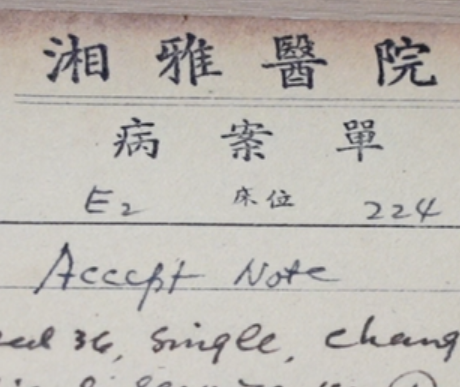 湘雅醫院
病案單
E2 床位 224
Accept Note
36, Single, Chang